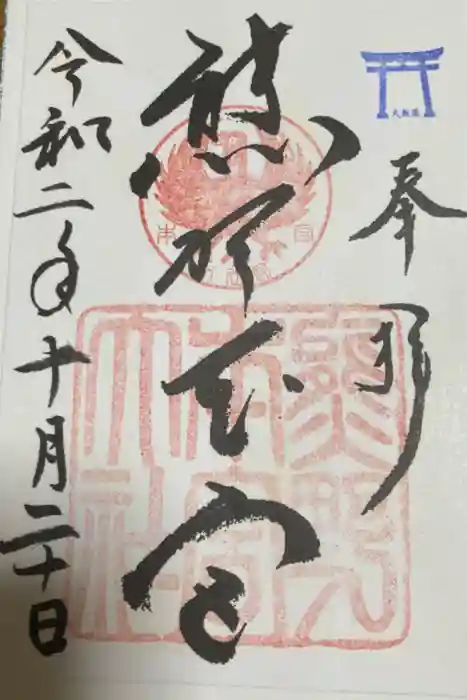 大斎原
奉拝
熊野本宮
熊野
本宮
大社
令和二年十月二十日